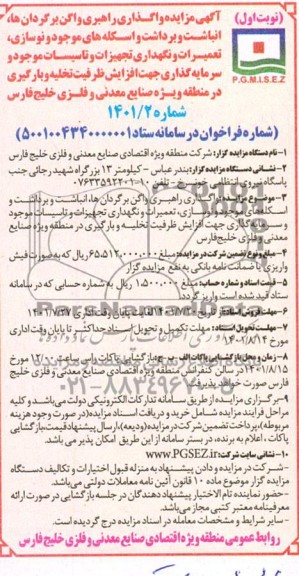 (نوبت اول)
آگهی مزایده واگذاری راهبری واگن برگردان ها،
انباشت و برداشت و اسکله های موجود و نوسازی،
تعمیرات و نگهداری تجهیزات و تاسیسات موجود و
سرمایه گذاری جهت افزایش ظرفیت تخلیه و بارگیری
در منطقه ویژه اقتصادی صنایع معدنی و فلزی خلیج فارس
P.G.M.I.S.E.Z
شماره ۱۴۰۱/۲
(شماره فراخوان در سامانه ستاد ۵۰۰۱۰۰۴۳۴۰۰۰۰۰۰۱)
۱- نام دستگاه مزایده گزار: شرکت منطقه ویژه اقتصادی صنایع معدنی و فلزی خلیج فارس
۲- نشانی دستگاه مزایده گزار: بندر عباس - کیلومتر ۱۳ بزرگراه شهید رجائی جنب
پاسگاه نیروی انتظامی تلفن ۱۰-۰۷۶۳۳۵۹۲۲۰۱
۳- موضوع مزایده: واگذاری راهبری واگن برگردان ها، انباشت و برداشت و
اسکله های موجود و نوسازی، تعمیرات و نگهداری تجهیزات و تاسیسات موجود
و سرمایه گذاری جهت افزایش ظرفیت تخلیه و بارگیری در منطقه ویژه صنایع
معدنی و فلزی خلیج فارس
۴- مبلغ و نوع تضمین شرکت در مزایده: مبلغ ریال که به صورت فیش
واریزی یا ضمانت نامه بانکی به نفع مزایده گزار
۵- قیمت اسناد و شماره حساب: مبلغ ۱,۵۰۰,۰۰۰ ریال به شماره حسابی که در سامانه
ستاد قید شده است واریز گردد
۶- مهلت فروش اسناد: لغایت پایان وقت اداری
۷- مهلت تحویل اسناد: مهلت تکمیل و تحویل اسناد حداکثر تا پایان وقت اداری
مورخ
۸- زمان و محل بازگشایی پاکات الف - ب - ج: بازگشایی پاکات راس ساعت ۱۲:۰۰ مورخ
۱۴۰۱/۸/۱۵ در سالن کنفرانس منطقه ویژه اقتصادی صنایع معدنی و فلزی خلیج
فارس صورت خواهد پذیرفت
۹- برگزاری مزایده از طریق سامانه تدارکات الکترونیکی دولت می باشد و کلیه
مراحل فرایند مزایده شامل خرید و دریافت اسناد مزایده (در صورت وجود هزینه
مربوطه)، پرداخت تضمین شرکت در مزایده (ودیعه)، ارسال پیشنهاد قیمت، بازگشایی
پاکات، اعلام به برنده، در بستر سامانه از این طریق امکان پذیر می باشد.
۱۰- نشانی سایت شرکت: www.PGSEZ.ir
- شرکت در مزایده و دادن پیشنهاد به منزله قبول اختیارات و تکالیف دستگاه
مزایده گزار موضوع ماده ۱۰ قانون آئین نامه معاملات دولتی می باشد.
- حضور نماینده تام الاختیار پیشنهاد دهندگان در جلسه بازگشایی در صورت ارائه
معرفینامه معتبر کتبی مجاز می باشد.
- سایر شرایط و مشخصات معامله در اسناد مزایده درج گردیده است.
روابط عمومی منطقه ویژه اقتصادی صنایع معدنی و فلزی خلیج فارس